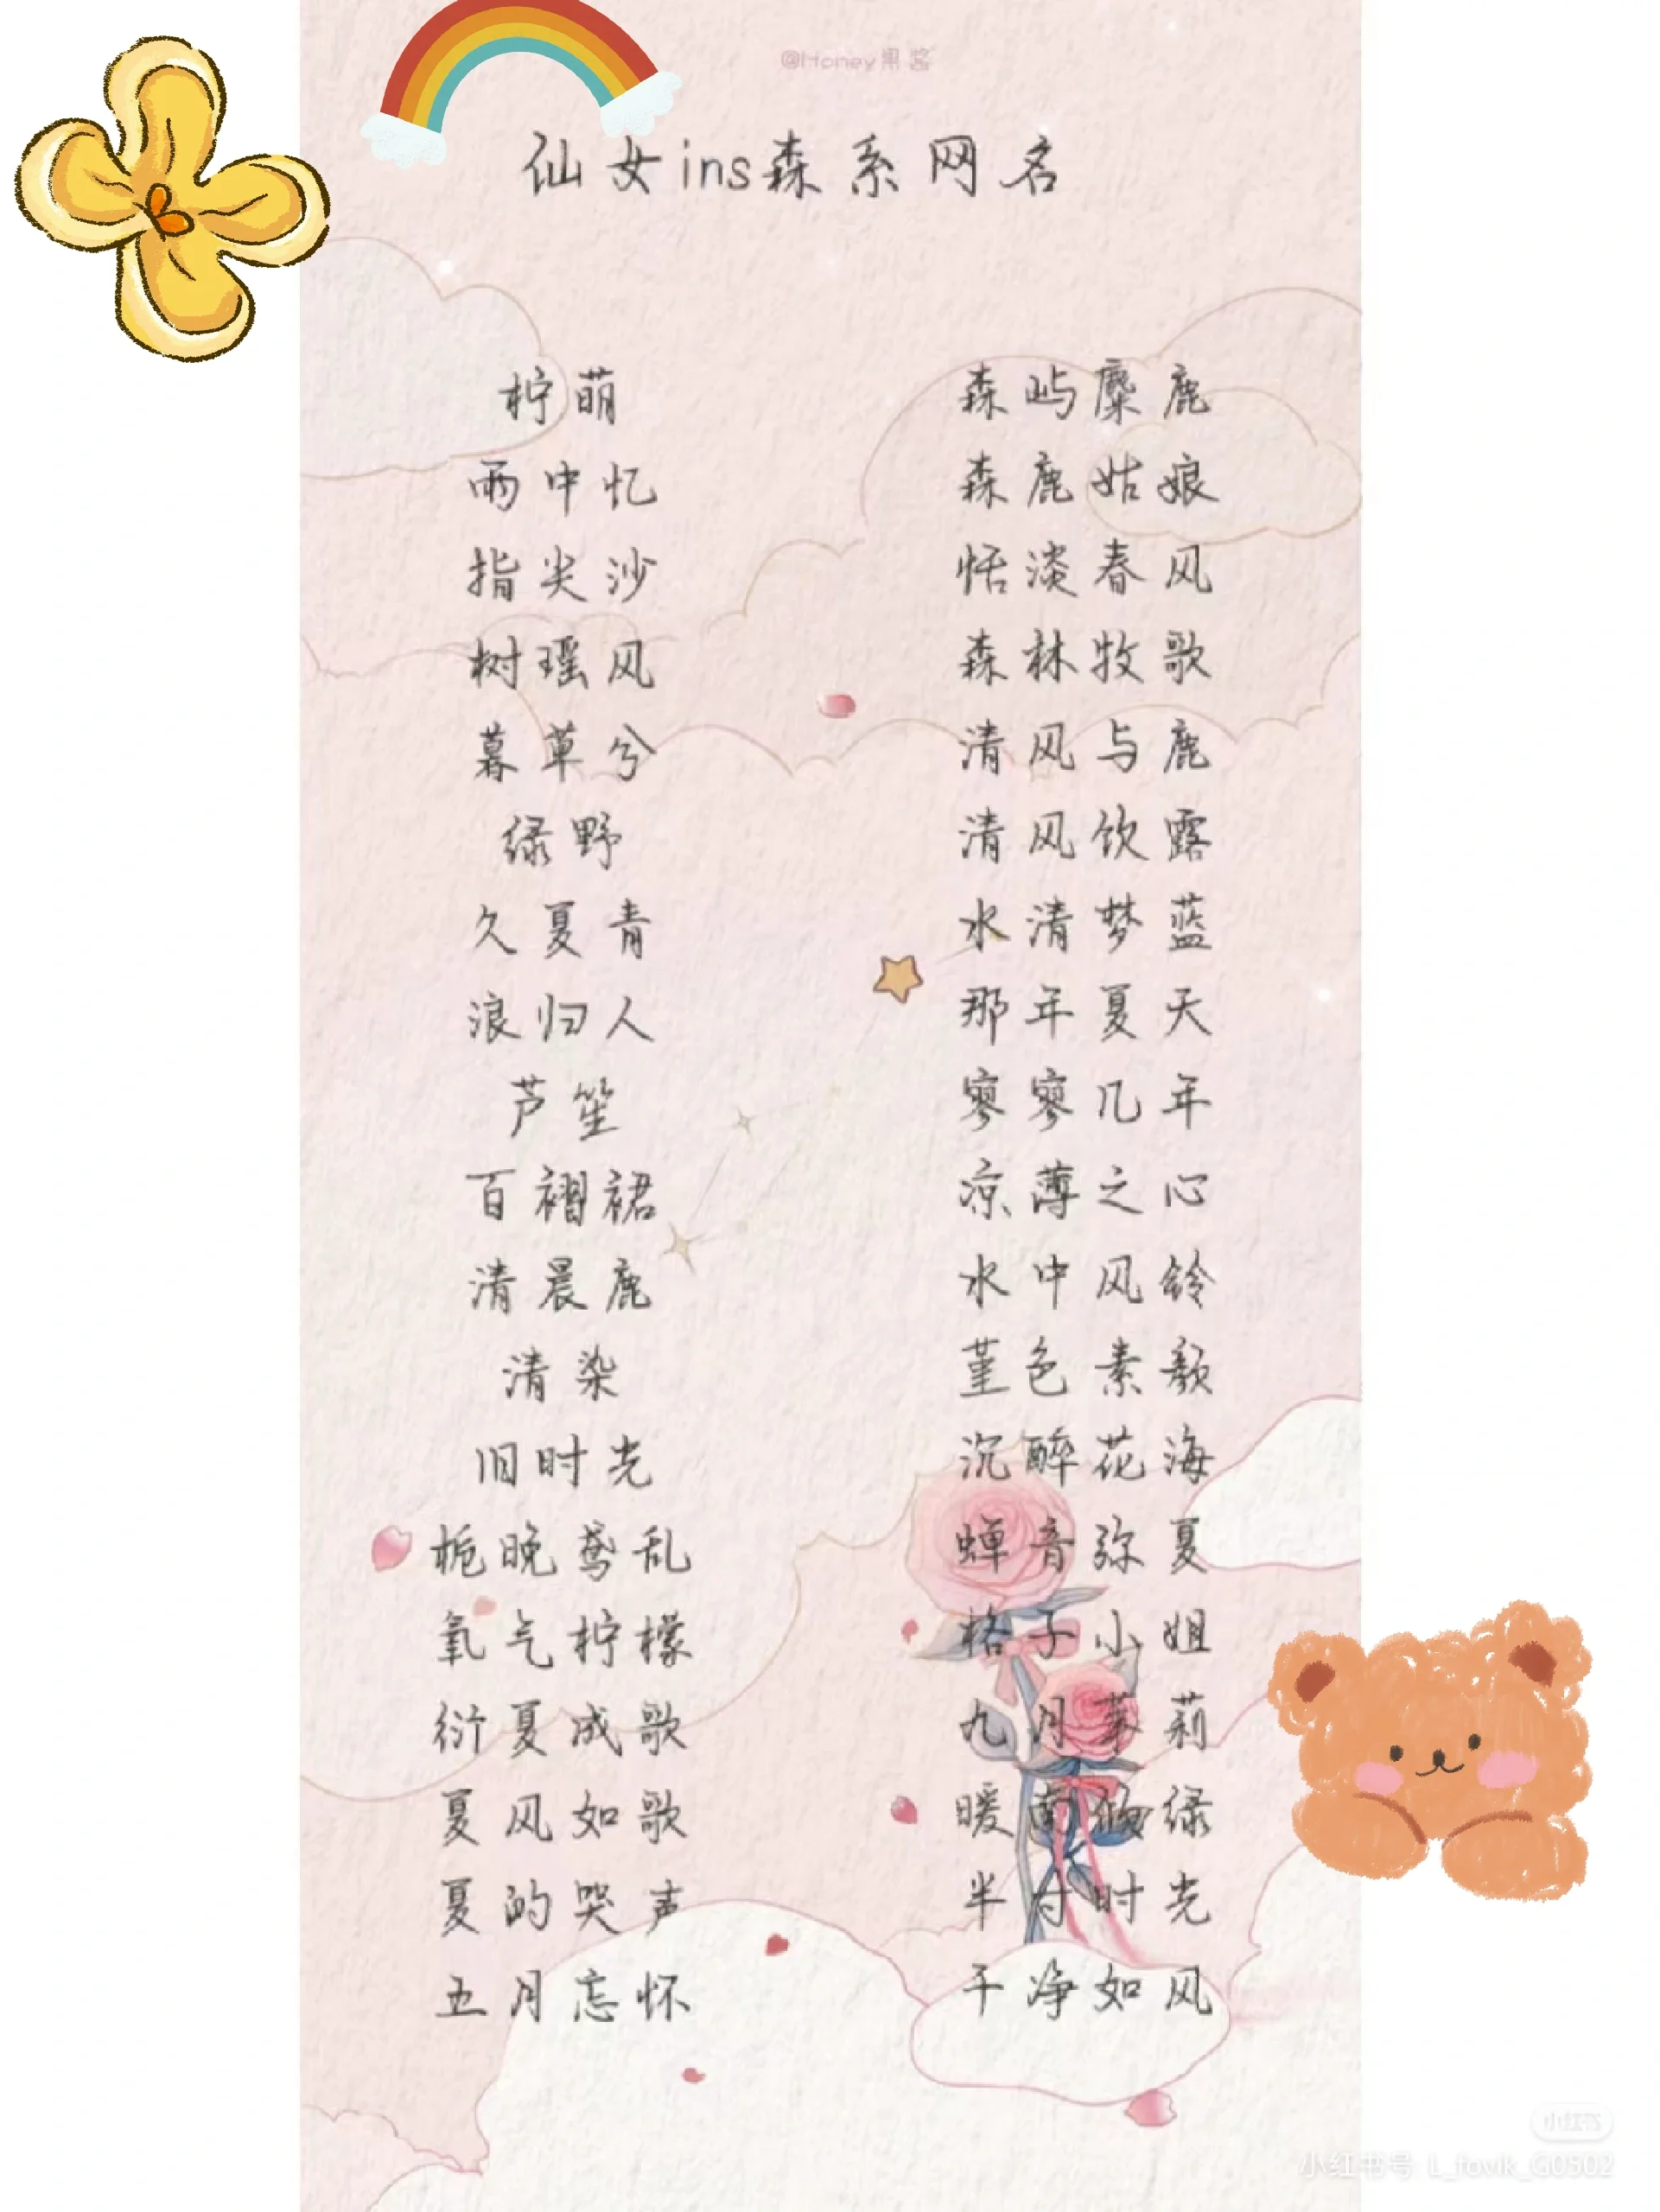 @Honey果酱
仙女ins森系网名
柠萌
雨中忆
指尖沙
树瑶风
暮草兮
绿野
久夏青
浪归人
芦笙
百褶裙
清晨鹿
清染
旧时光
栀晚鸢乱
氧气柠檬
衍夏成歌
夏风如歌
夏的哭声
五月忘怀
森屿麋鹿
森鹿姑娘
恬淡春风
森林牧歌
清风与鹿
清风饮露
水清梦蓝
那年夏天
寥寥几年
凉薄之心
水中风铃
堇色素颜
沉醉花海
蝉音弥夏
格子小姐
九月茉莉
暖南倾绿
半寸时光
干净如风
小红书
小红书号 L_fovik_G0502